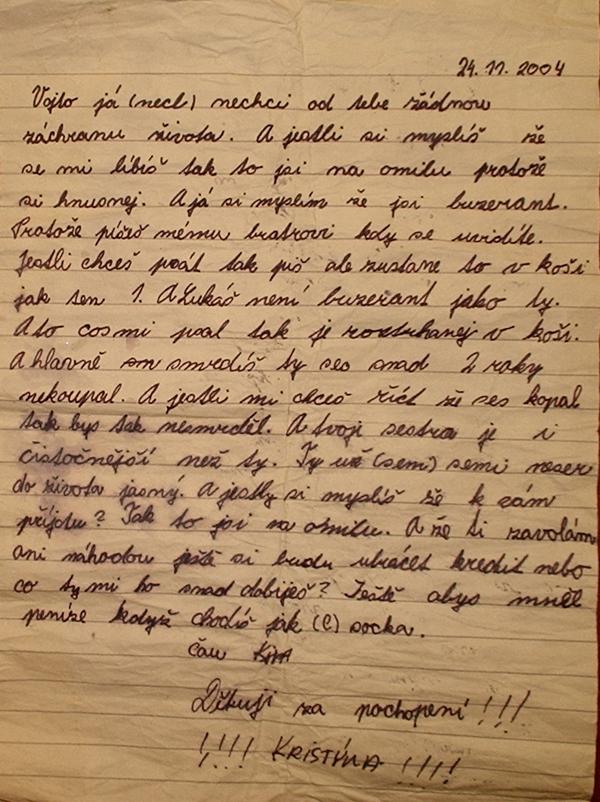 24.11.2004
Vojto já (necl) nechci od tebe žádnou
záchranu života. A jestli si myslíš že
se mi líbíš tak to jsi na omilu protože
si hnusnej. A já si myslím že jsi buzerant.
Protože píšeš mému bratrovi kdy se uvidíte.
Jestli chceš psát tak piš ale zustane to v koši
jak ten 1. A Lukáš není buzerant jako ty.
A to cos mi psal tak je roztrhanej v koši.
A hlavně smrdíš ty ses snad 2 roky
nekoupal. A jestli mi chceš říct že ses kopal
tak bys tak nesmrděl. A tvoji sestra je i
čistočnější než ty. Ty už (semi) semi neser
do života jasný. A jestly si myslíš že k vám
příjdu? Tak to jsi na omilu. A že ti zavolám
ani náhodou ještě si budu utrácet kredit nebo
co ty mi ho snad dobiješ? Ještě abys mněl
peníze když chodíš jak (c) socka.
čau
Děkuji za pochopení!!!
!!!! KRISTÍNA !!!!